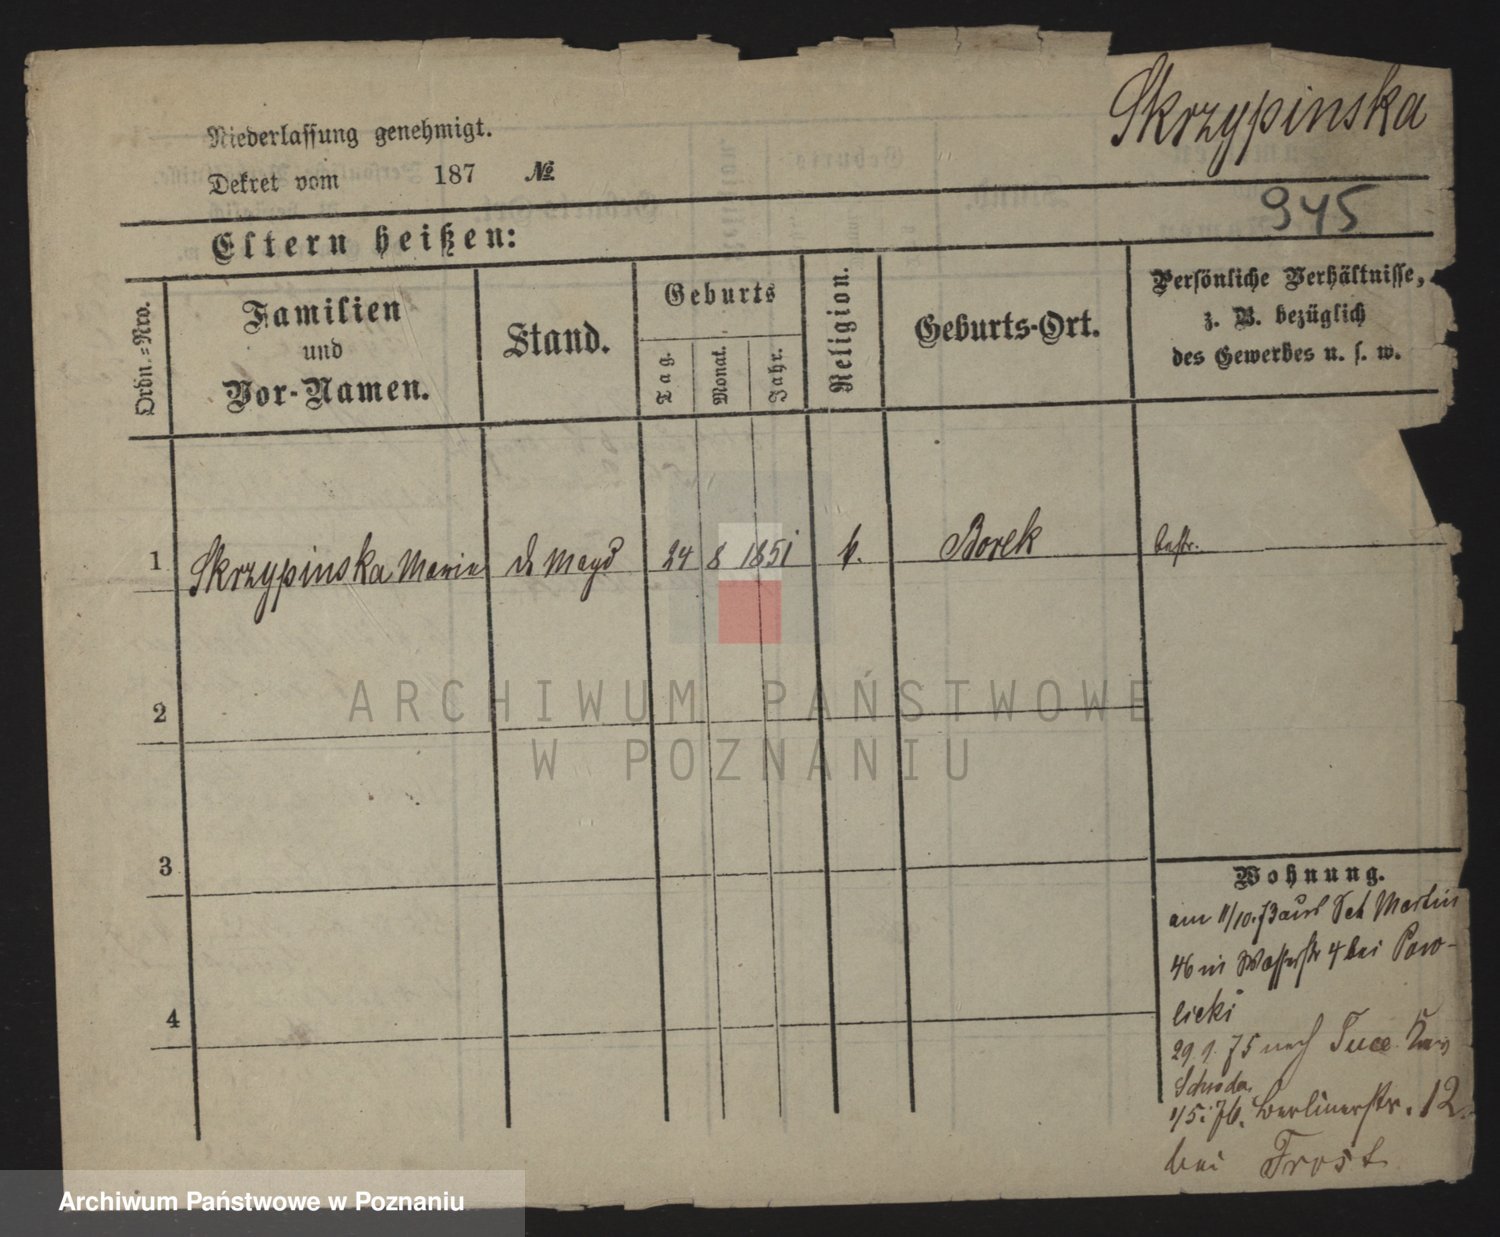 Skrzypinska
Niederlassung genehmigt.
Dekret vom 187 №
945
Eltern heißen:
Ordn.=Nro.
Familien
und
Vor-Namen.
Stand.
Geburts
Tag.
Monat.
Jahr.
Religion.
Geburts-Ort.
Persönliche Verhältnisse,
z. B. bezüglich
des Gewerbes u. s. w.
1 Skrzypinska Marie d. Magd 24 8 1851 k. Borek
2
3
4
Wohnung.
am 11/10.73 aus Sct Martin
46 in Wasserstr 4 bei Paw-
licki
29.9.75 nach
Schroda
1/5.76. Berlinerstr. 12
bei Frost
ARCHIWUM PAŃSTWOWE
W POZNANIU
Archiwum Państwowe w Poznaniu